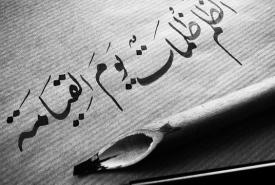 الظلم ظُلُمَاتٌ يَوْمَ القِيَامَة